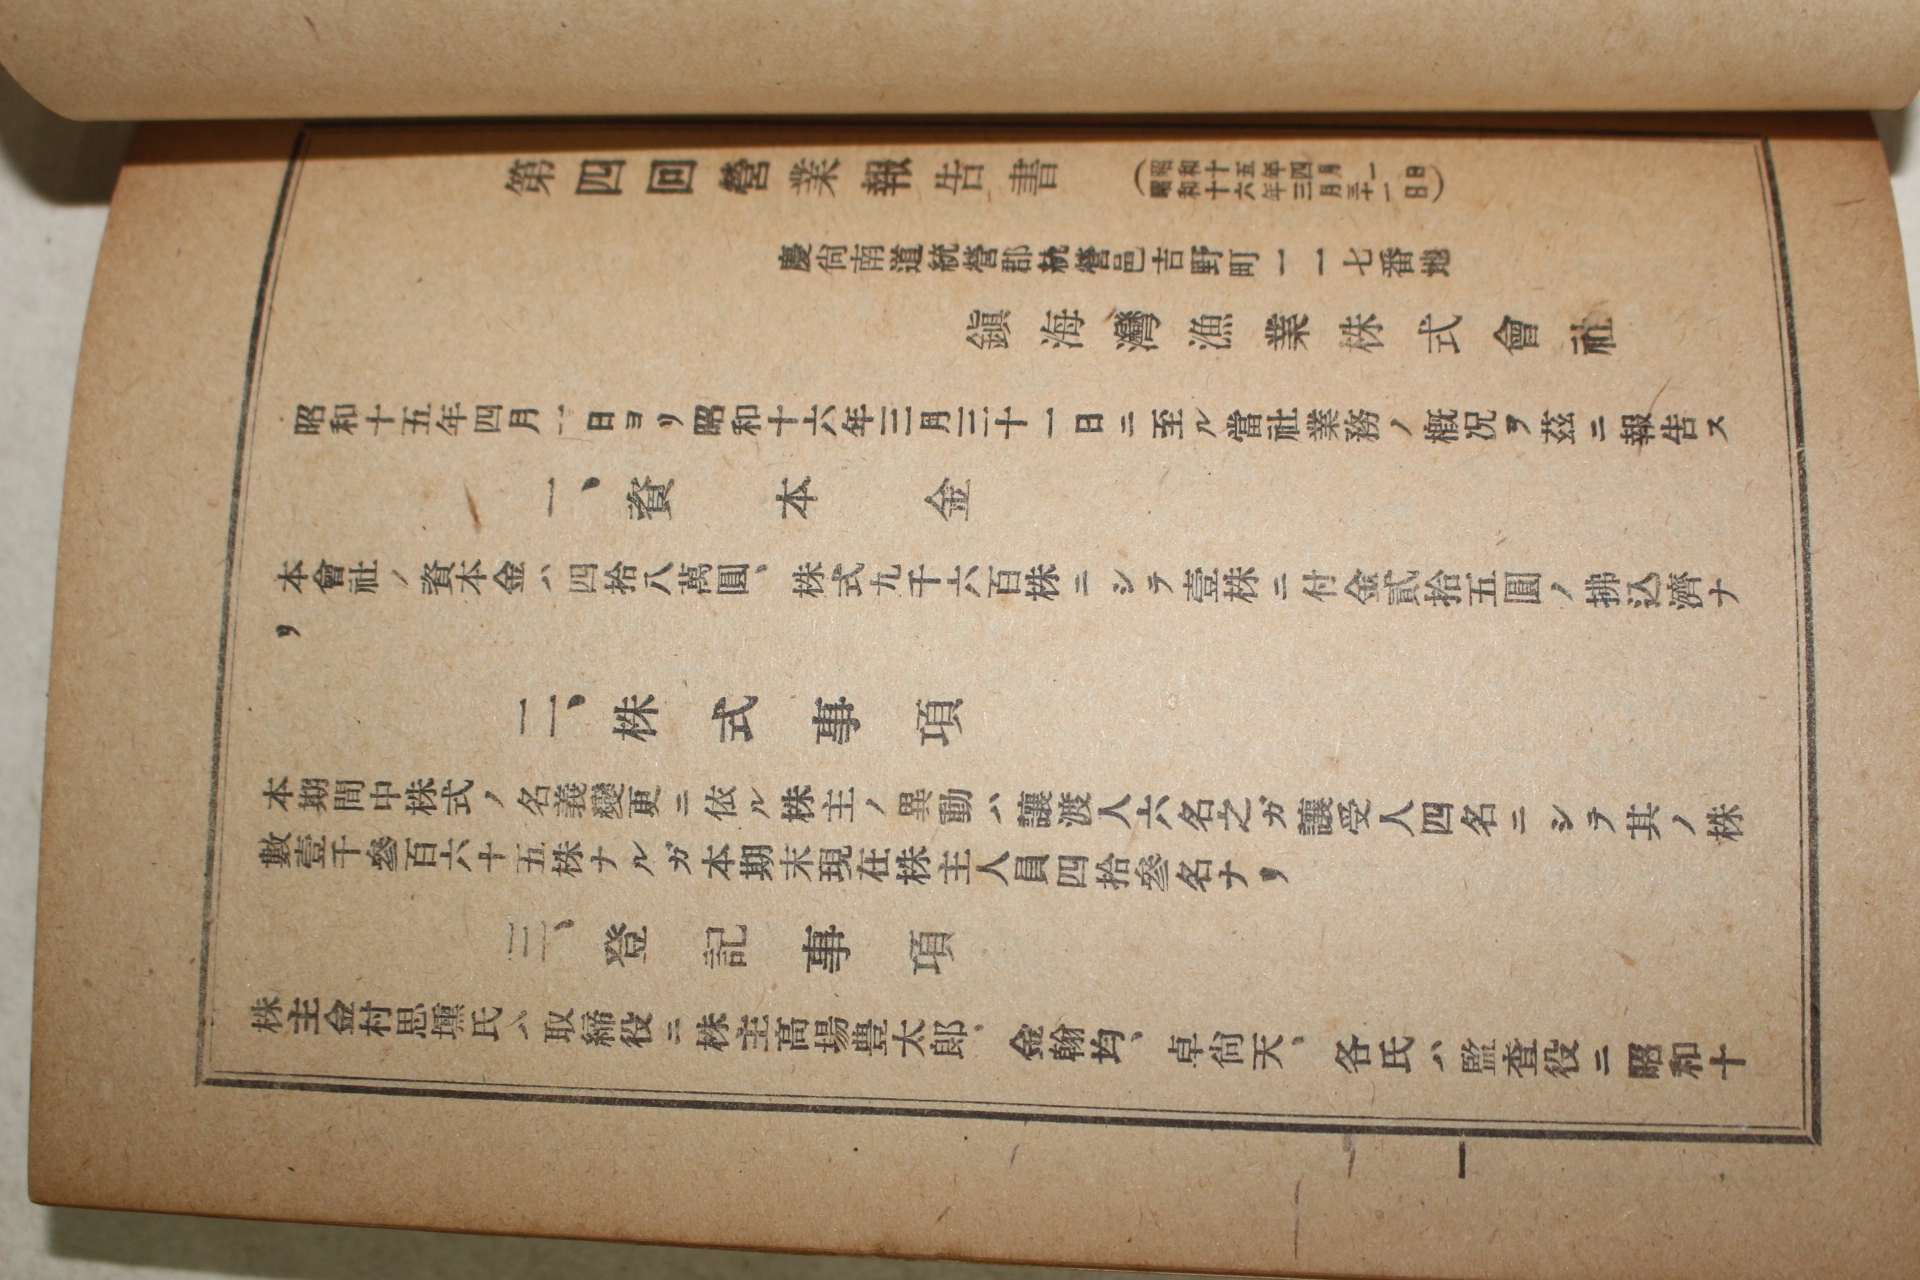 第四回營業報告書
(昭和十五年四月一日
昭和十六年三月三十一日)
慶尙南道統營郡統營邑吉野町一一七番地
鎭海灣漁業株式會社
昭和十五年四月一日ヨリ昭和十六年三月三十一日ニ至ル當社業務ノ概況ヲ玆ニ報告ス
一、資本金
本會社ノ資本金ハ四拾八萬圓、株式九千六百株ニシテ壹株ニ付金貳拾五圓ノ拂込濟ナ
リ
二、株式事項
本期間中株式ノ名義變更ニ依ル株主ノ異動ハ讓渡人六名之ガ讓受人四名ニシテ其ノ株
數壹千參百六十五株ナルガ本期末現在株主人員四拾參名ナリ
三、登記事項
株主金村思壎氏ハ取締役ニ株主高場豊太郎、金翰均、卓尙天、各氏ハ監查役ニ昭和十
一